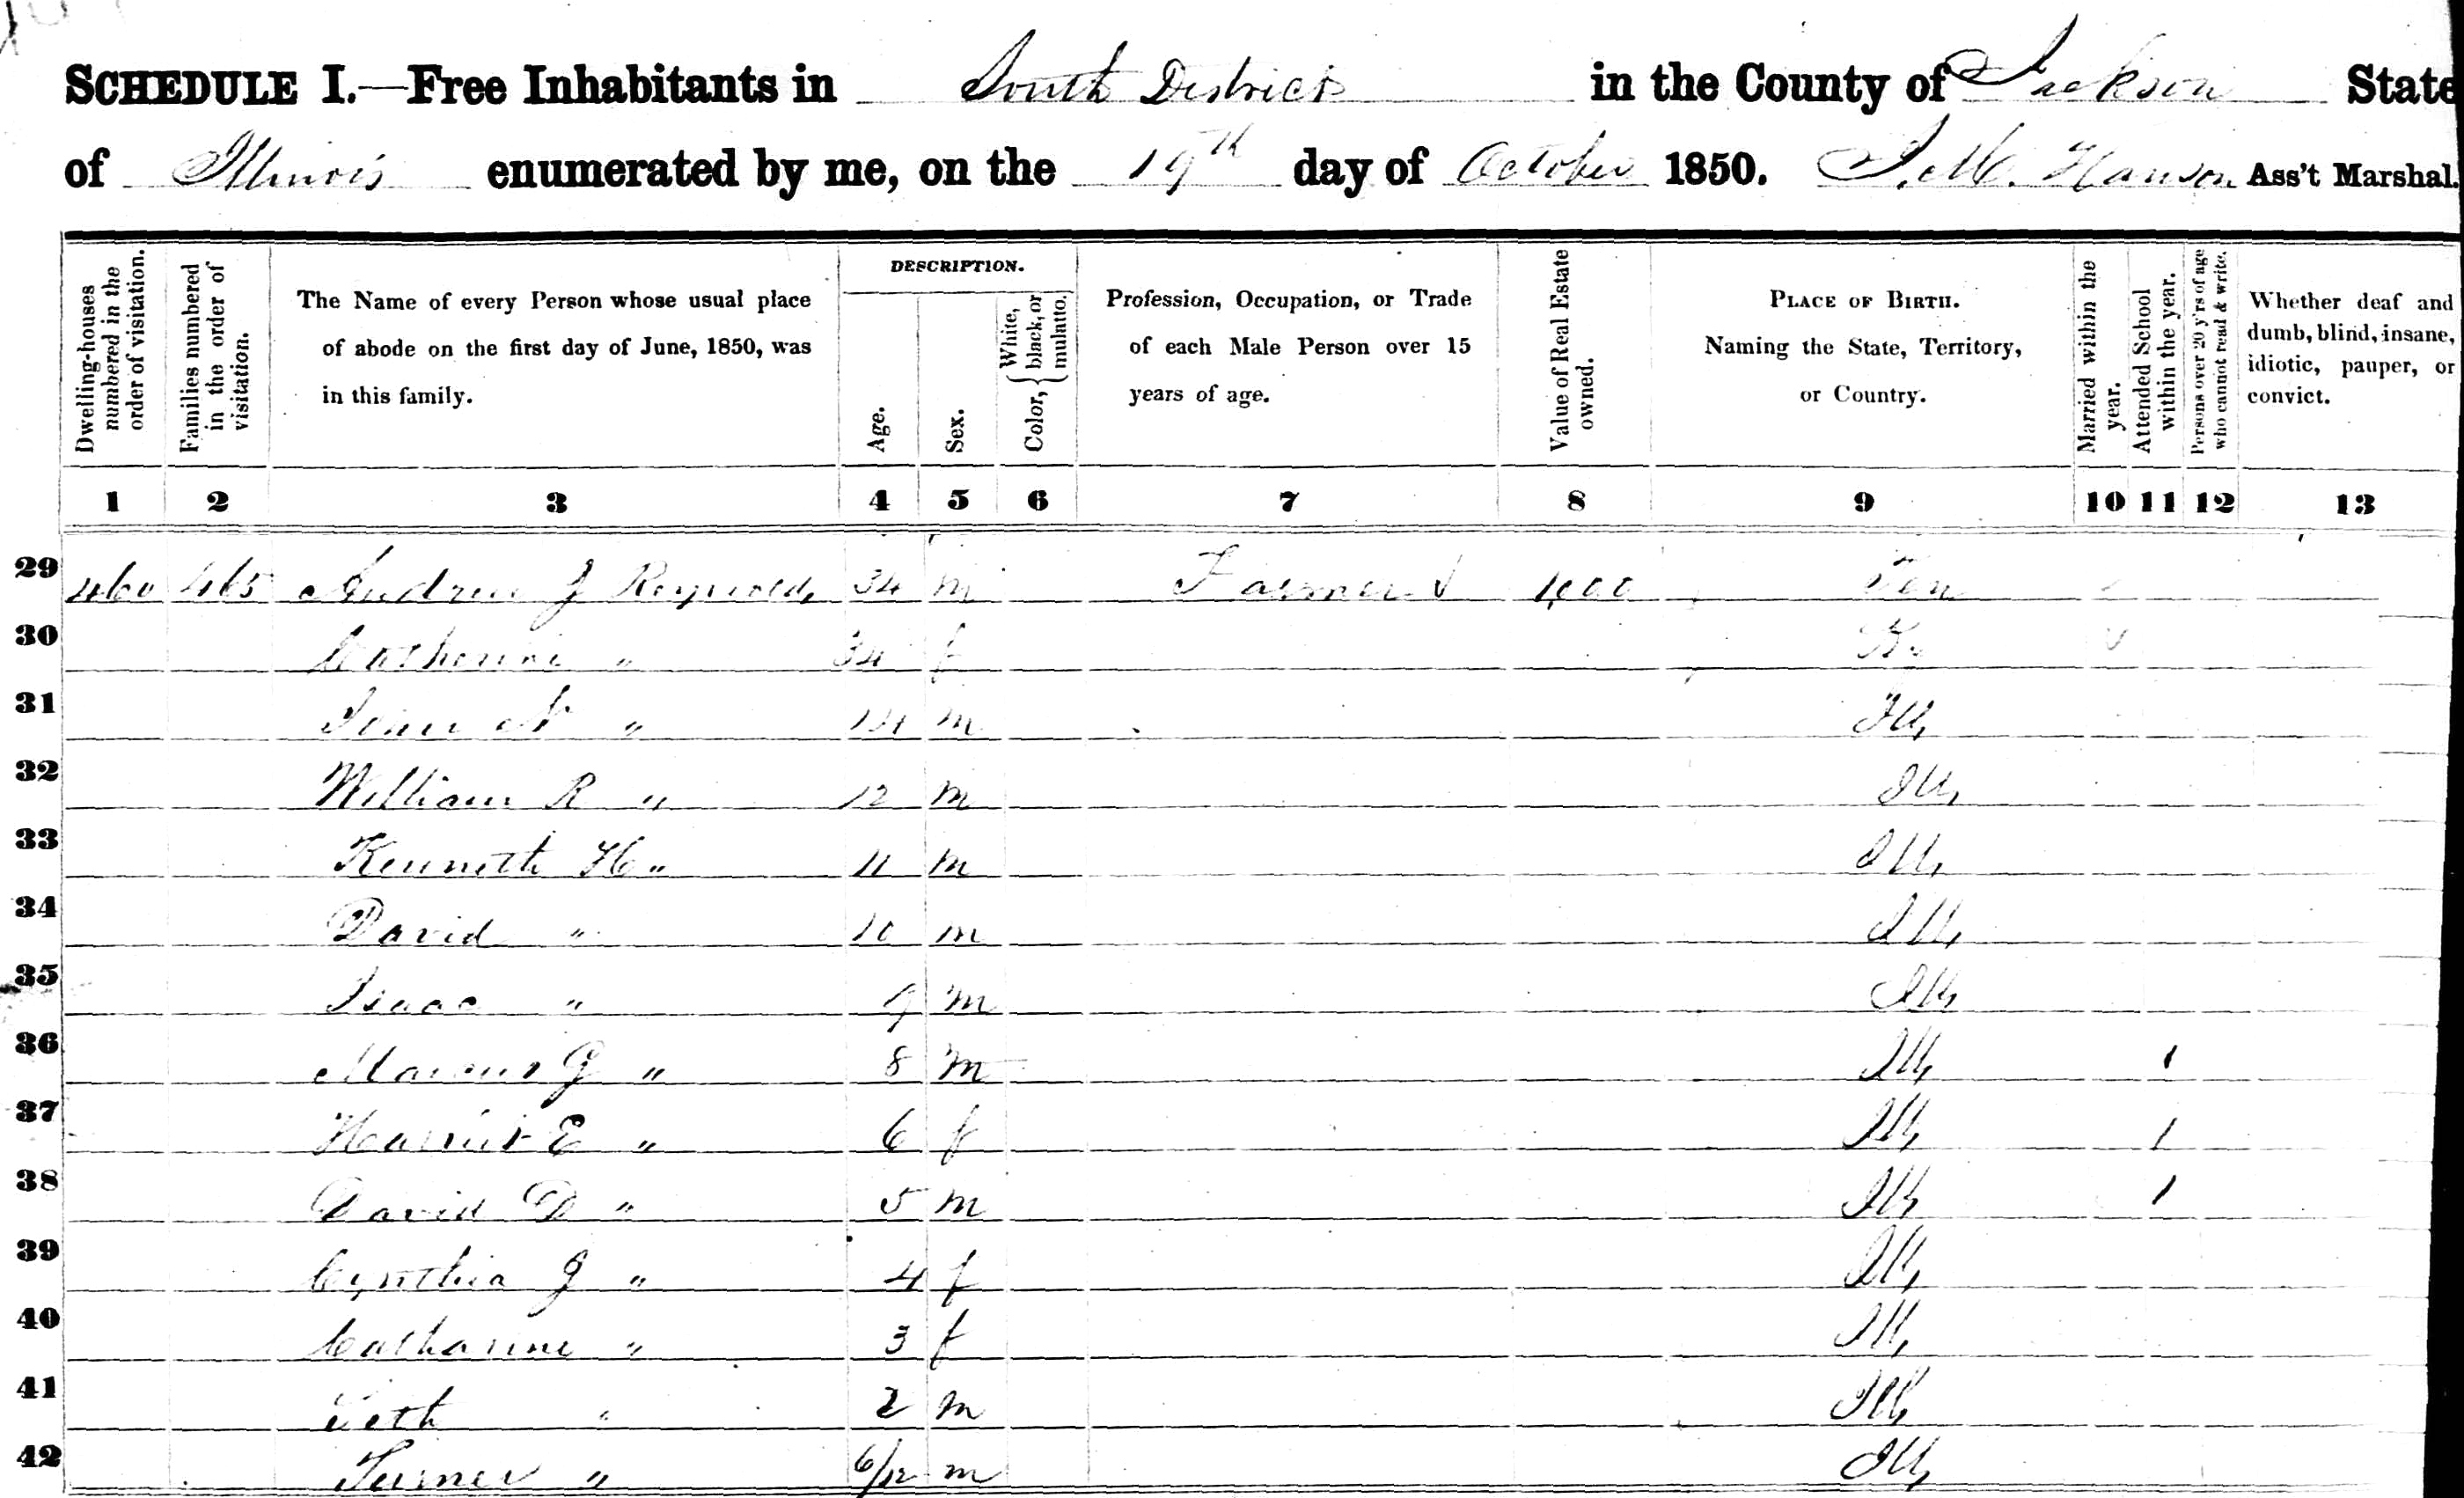 SCHEDULE I.—Free Inhabitants in South District in the County of Jackson State
of Illinois enumerated by me, on the 19th day of October 1850. Hanson Ass't Marshal.
Dwelling-houses numbered in the order of visitation.
Families numbered in the order of visitation.
The Name of every Person whose usual place of abode on the first day of June, 1850, was in this family.
DESCRIPTION.
Age.
Sex.
Color, { White, black, or mulatto.
Profession, Occupation, or Trade of each Male Person over 15 years of age.
Value of Real Estate owned.
PLACE OF BIRTH. Naming the State, Territory, or Country.
Married within the year.
Attended School within the year.
Persons over 20 y'rs of age who cannot read & write.
Whether deaf and dumb, blind, insane, idiotic, pauper, or convict.
1 2 3 4 5 6 7 8 9 10 11 12 13
29 460 465 Andrew J Reynolds 34 m Farmer 1,000 Ten
30 Catherine " 34 f Ky
31 " 14 m Ill,
32 William R " 12 m Ill,
33 Kenneth H " 11 m Ill,
34 David " 10 m Ill,
35 Isaac " 9 m Ill,
36 Marcus G " 8 m Ill, 1
37 Harriet E " 6 f Ill, 1
38 David D " 5 m Ill, 1
39 Cynthia J " 4 f Ill,
40 Catharine " 3 f Ill,
41 Seth " 2 m Ill,
42 Turner " 6/12 m Ill,